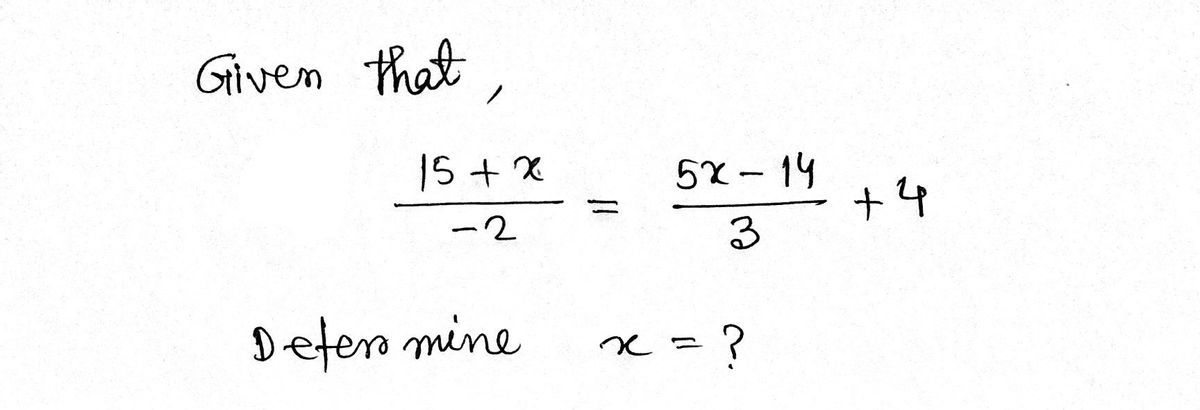 Given that,
15 + x / -2 = 5x - 14 / 3 + 4
Determine x = ?